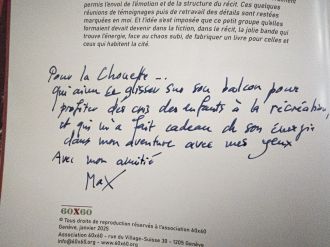 permis l'envol de l'émotion et de la structure du récit. Ces quelques
réunions de témoignages puis de retravail des détails sont restées
marquées en moi. Et l'idée s'est imposée que ce petit groupe qu'elles
formaient devait devenir dans la fiction, dans le récit, la jolie bande qui
trouve l'énergie, face au chaos subi, de fabriquer un livre pour celles et
ceux qui habitent la cité.
Pour la Chouette...
qui aime se glisser sur son balcon pour
profiter des cris des enfants à la récréation,
et qui m'a fait cadeau de son énergie
dans mon aventure avec mes yeux
Avec mon amitié
Max
60X60
© Tous droits de reproduction réservés à l'association 60x60
Genève, janvier 2025
Association 60x60 - 30 rue du Village-Suisse 30 - 1205 Genève
info@60x60.org - www.60x60.org